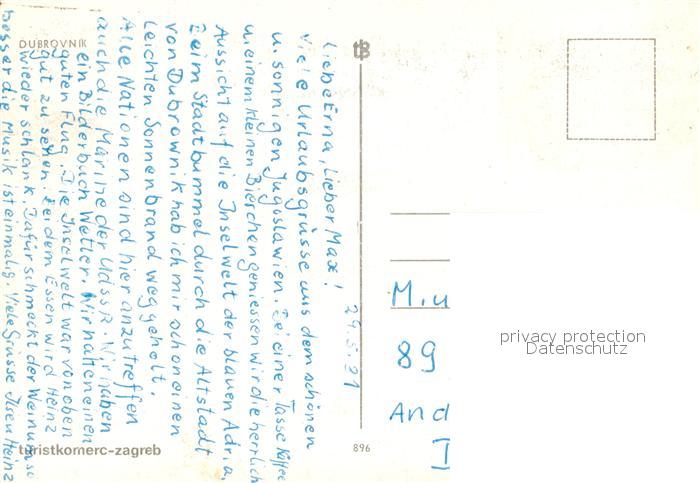 DUBROVNIK
29.5.81
Liebe Erna, Lieber Max!
Viele Urlaubsgrüsse aus dem schönen
u. sonnigen Jugoslawien. Bei einer Tasse Kaffee
u. einem kleinen Bierchen geniessen wir die herrlich
Aussicht auf die Inselwelt der blauen Adria.
Beim Stadtbummel durch die Altstadt
von Dubrownik hab ich mir schon einen
Leichten Sonnenbrand weggeholt.
Alle Nationen sind hier anzutreffen
auch die Marine der UdSSR. Wir haben
ein Bilderbuch Wetter. Wir hatten einen
guten Flug. Die Inselwelt war von oben
gut zu sehen. Bei dem Essen wird Heinz
wieder schlank. Dafür schmeckt der Wein um so
besser die Musik ist einmalig. Viele Grüsse Ilse u Heinz
turistkomerc-zagreb
896
M. u
89
And
privacy protection
Datenschutz